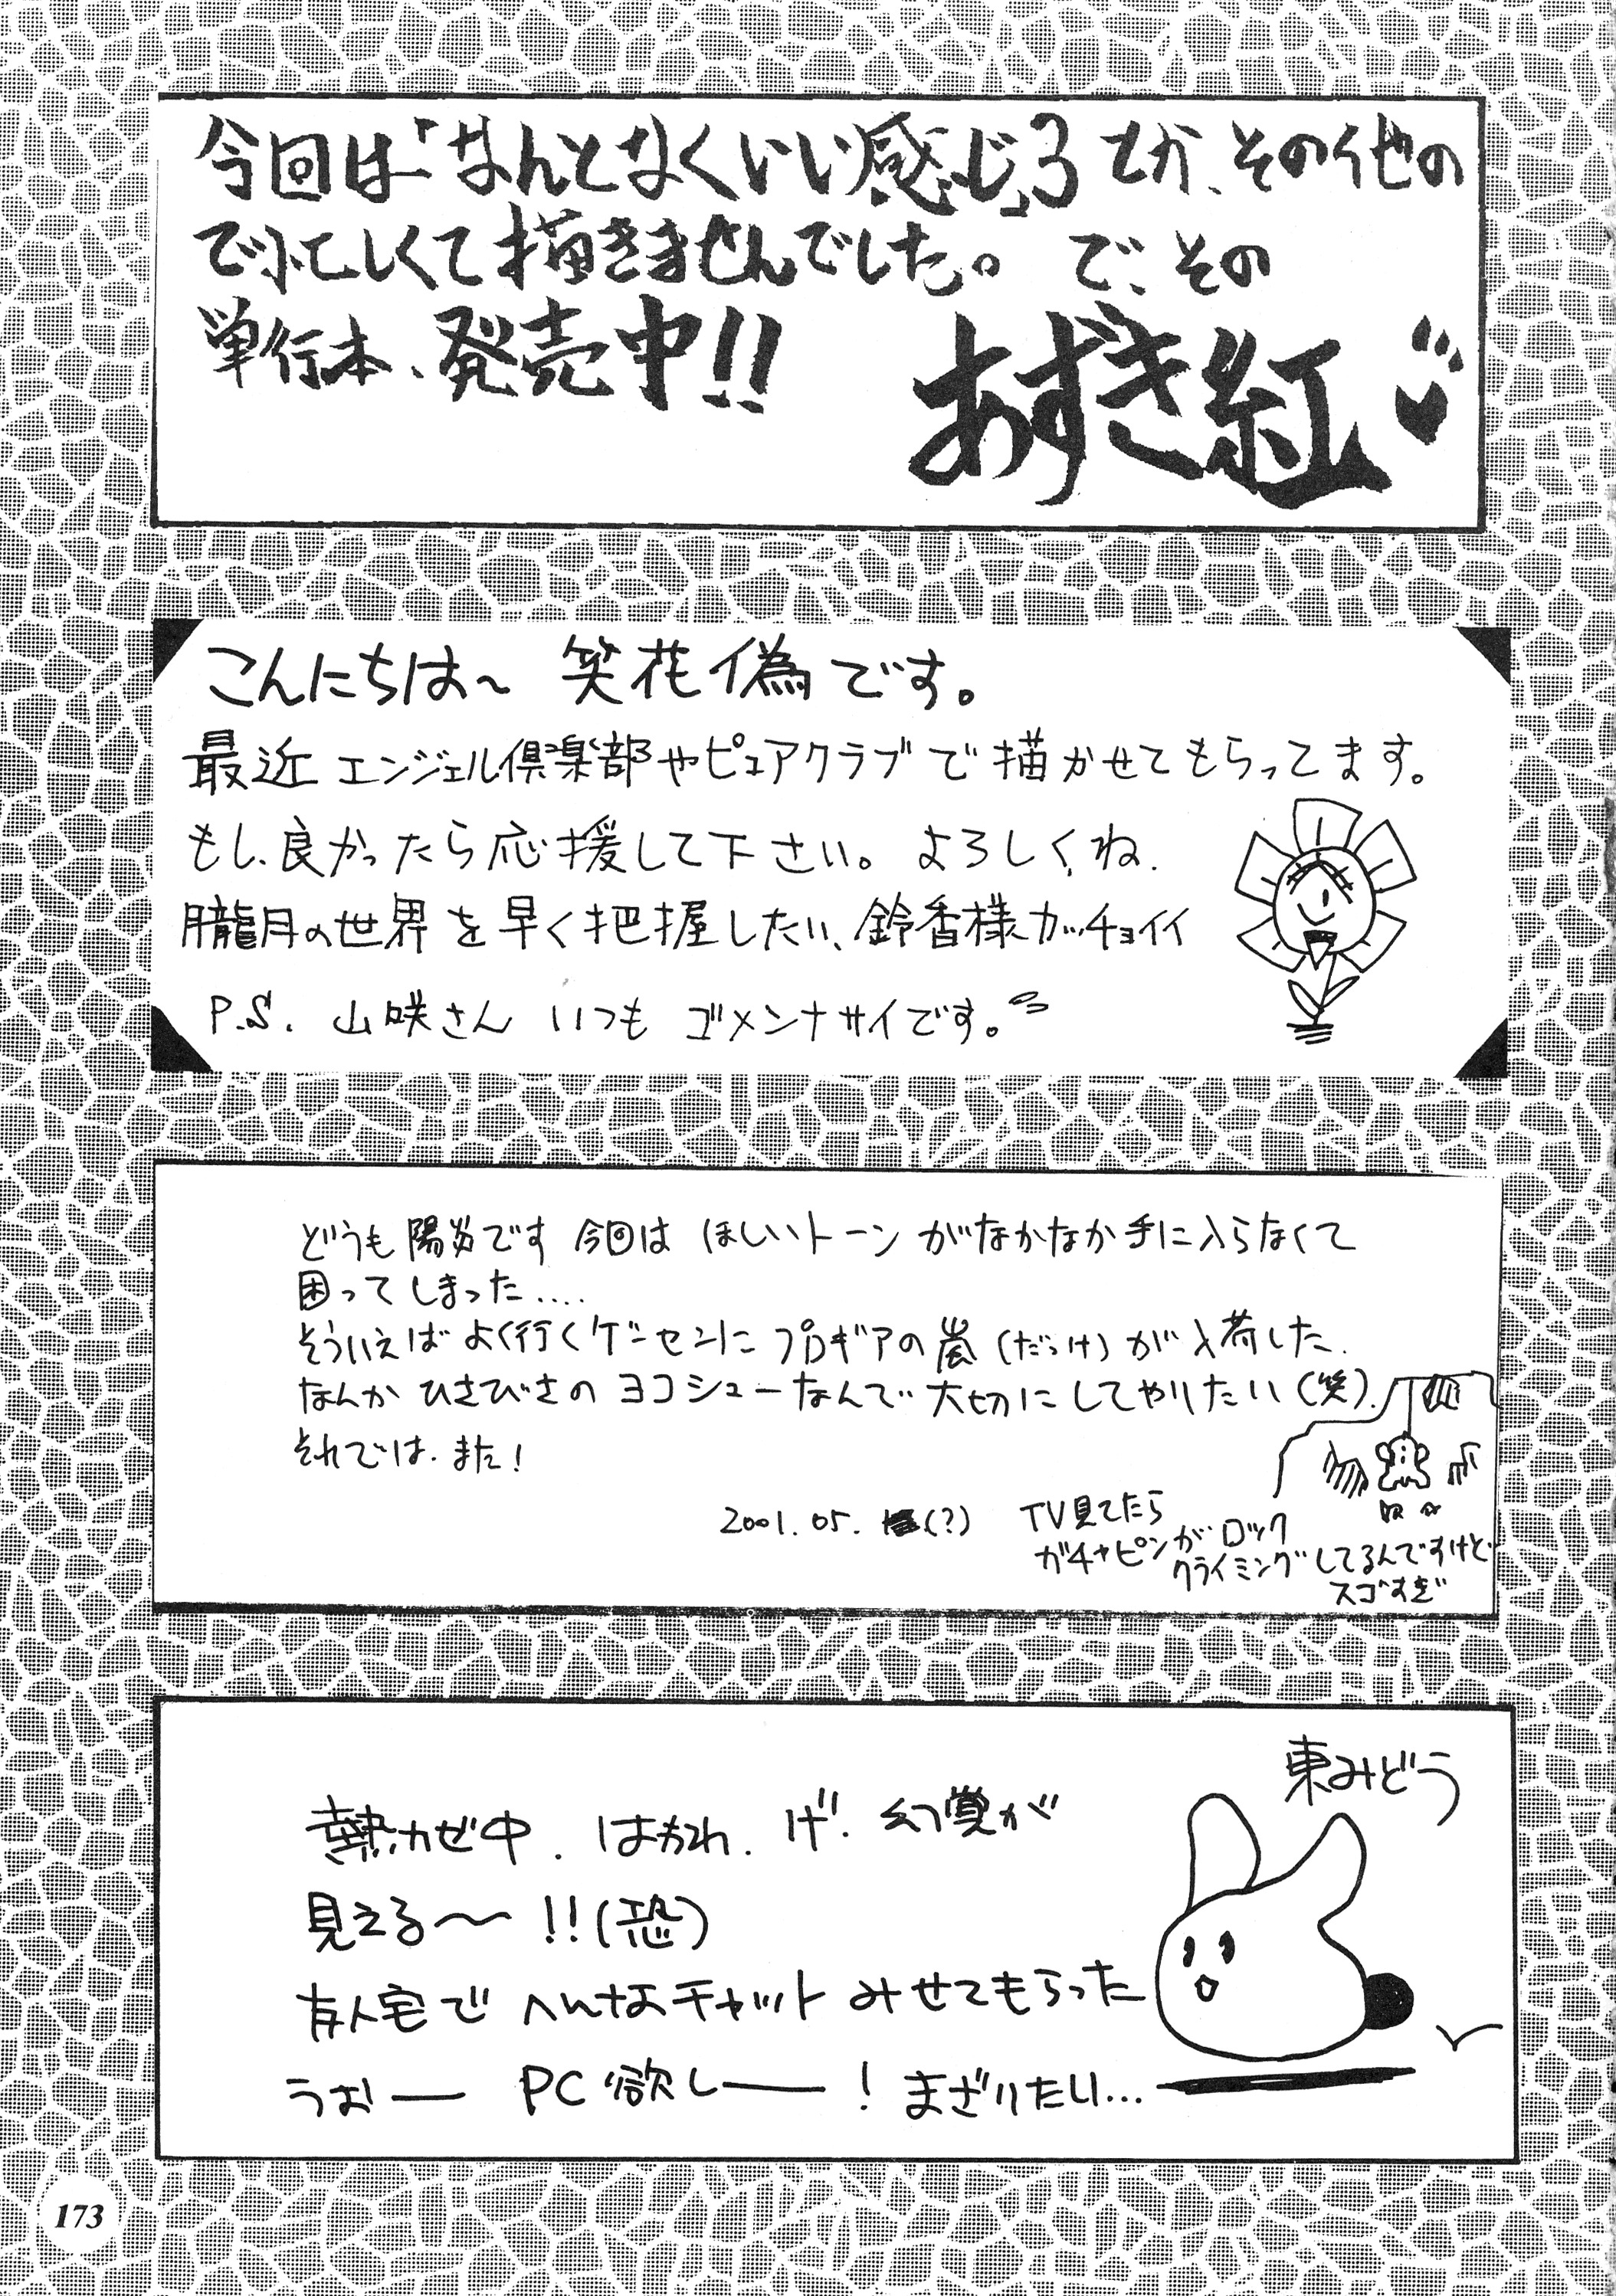 今回は「なんとなくいい感じ」3 とか、その他の
で忙しくて描きませんでした。 で、その
単行本、発売中!!
あずき紅
こんにちは〜 笑花偽です。
最近エンジェル倶楽部やピュアクラブで描かせてもらってます。
もし、良かったら応援して下さい。よろしくね.
朧月の世界を早く把握したい、鈴香様カッチョイイ
P.S. 山咲さん いつも ゴメンナサイです。
どうも陽炎です 今回は ほしいトーン がなかなか手に入らなくて
困ってしまった....
そういえばよく行くゲーセンにプロギアの嵐(だっけ)が入荷した.
なんか ひさびさの ヨコシューなんで大切にしてやりたい(笑).
それでは.また!
2001.05. (?)
TV見てたら
ガチャピンがロック
クライミングしてるんですけど
スゴすぎ
東みどう
熱カゼ中. はわわ. げ!幻覚が
見える〜!!(恐)
友人宅で へんなチャット みせてもらった
うおー PC欲しー! まざりたい...
173